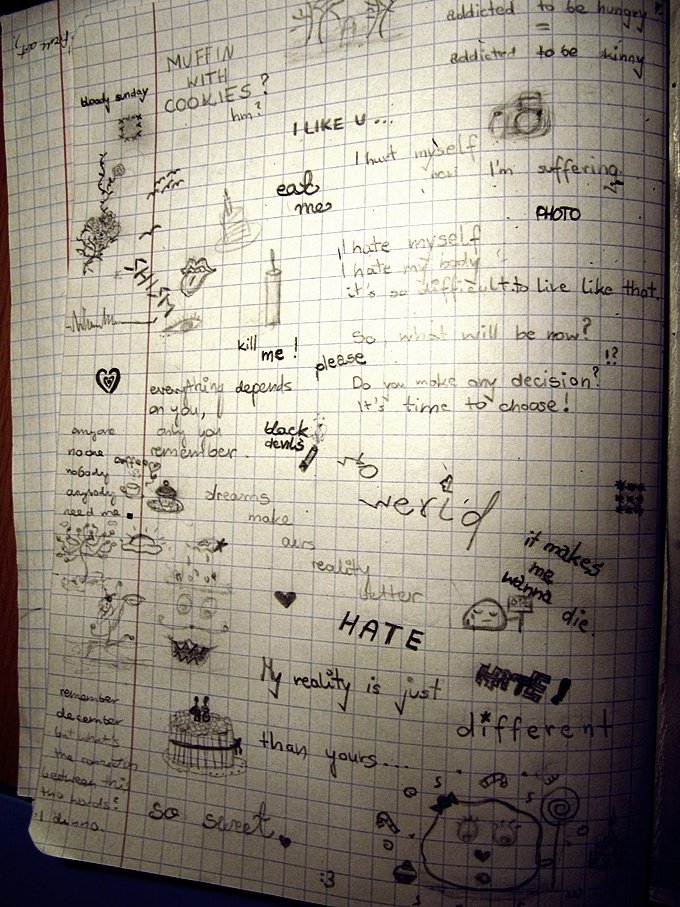 addicted to be hungry
=
addicted to be skinny
MUFFIN
WITH
COOKIES?
hm?
bloody sunday
I LIKE U...
I hurt myself
now I'm suffering
eat
me
PHOTO
I hate myself
I hate my body
it's so difficult to live like that.
So, what will be now?
!?
kill me!
please
Do you make any decision?
It's time to choose!
everything depends
on you,
only you
remember.
black
devils
anyone
noone
nobody
anybody
need me.
coffee
dreams
make
ours
reality
better
werid
it makes
me
wanna
die.
HATE
My reality is just
HATE!
different
than yours...
remember
december
but what's
the connection
between this
two words?
I dunno.
so sweet
:3